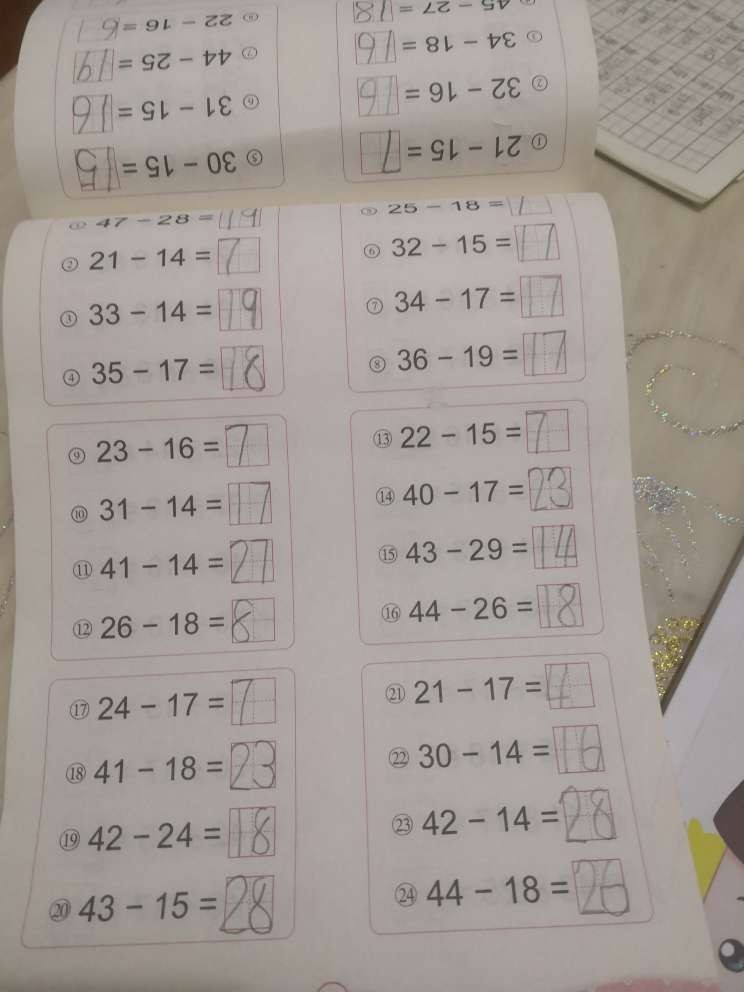 ① 21 − 15 =
② 32 − 16 = 16
③ 34 − 18 = 16
45 − 27 = 18
⑤ 30 − 15 = 15
⑥ 31 − 15 = 16
⑦ 44 − 25 = 19
⑧ 22 − 16 = 6
① 47 − 28 = 19
② 21 − 14 = 7
③ 33 − 14 = 19
④ 35 − 17 = 18
⑤ 25 − 18 =
⑥ 32 − 15 = 17
⑦ 34 − 17 = 17
⑧ 36 − 19 = 17
⑨ 23 − 16 = 7
⑩ 31 − 14 = 17
⑪ 41 − 14 = 27
⑫ 26 − 18 = 8
⑬ 22 − 15 = 7
⑭ 40 − 17 = 23
⑮ 43 − 29 = 14
⑯ 44 − 26 = 18
⑰ 24 − 17 = 7
⑱ 41 − 18 = 23
⑲ 42 − 24 = 18
⑳ 43 − 15 = 28
㉑ 21 − 17 = 4
㉒ 30 − 14 = 16
㉓ 42 − 14 = 28
㉔ 44 − 18 = 26